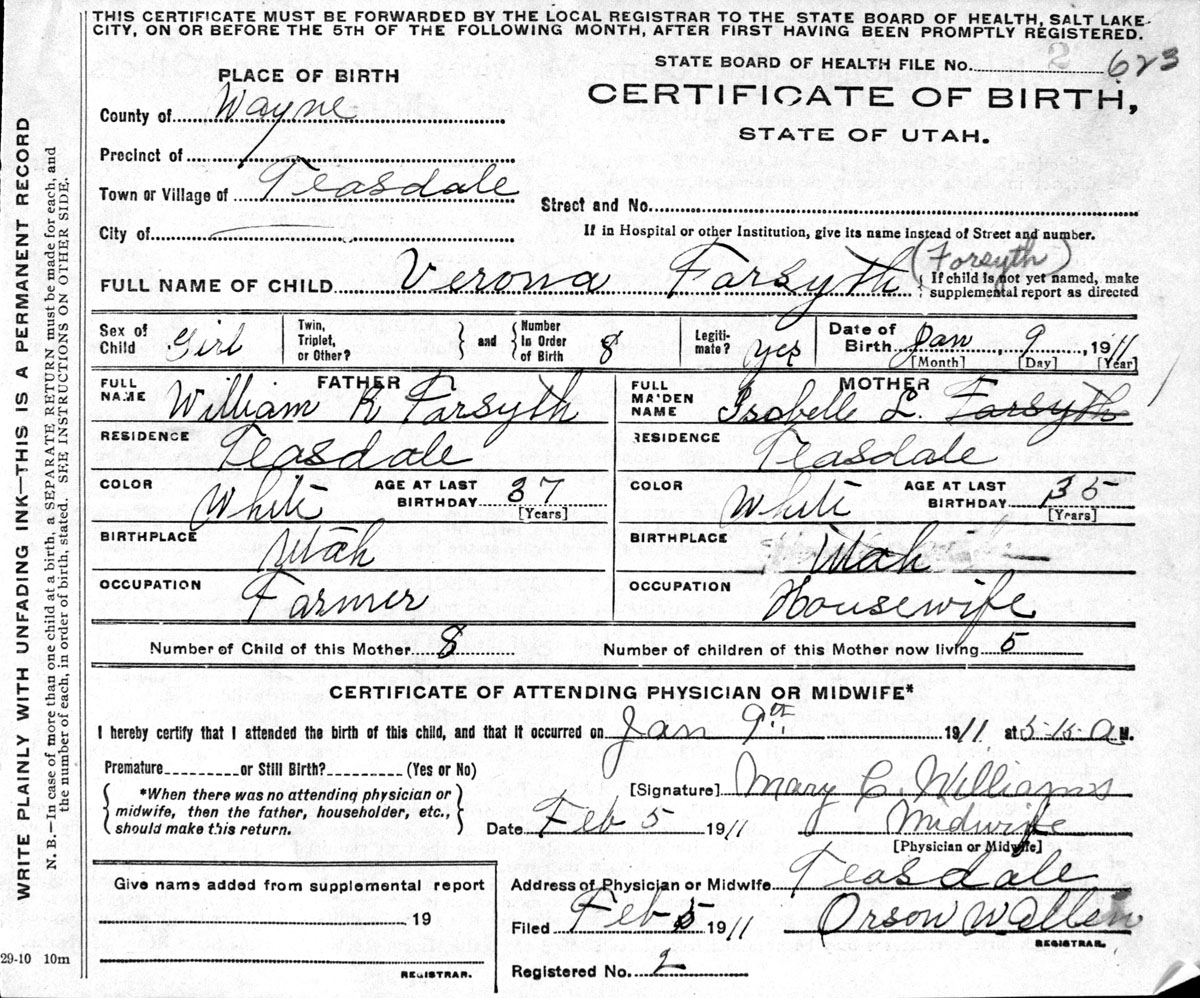 THIS CERTIFICATE MUST BE FORWARDED BY THE LOCAL REGISTRAR TO THE STATE BOARD OF HEALTH, SALT LAKE
CITY, ON OR BEFORE THE 5TH OF THE FOLLOWING MONTH, AFTER FIRST HAVING BEEN PROMPTLY REGISTERED.
WRITE PLAINLY WITH UNFADING INK—THIS IS A PERMANENT RECORD
N. B.—In case of more than one child at a birth, a SEPARATE RETURN must be made for each, and
the number of each, in order of birth, stated. SEE INSTRUCTIONS ON OTHER SIDE.
STATE BOARD OF HEALTH FILE No. 2 623
PLACE OF BIRTH
CERTIFICATE OF BIRTH,
STATE OF UTAH.
County of Wayne
Precinct of
Town or Village of Teasdale
Street and No.
City of
If in Hospital or other Institution, give its name instead of Street and number.
(Forsyth)
FULL NAME OF CHILD Verona Farsyth
If child is not yet named, make
supplemental report as directed
Sex of Child Girl
Twin, Triplet, or Other? and Number In Order of Birth 8
Legiti-mate? yes
Date of Birth Jan, 9, 1911
[Month] [Day] [Year]
FATHER
FULL NAME William R Farsyth
RESIDENCE Teasdale
COLOR White AGE AT LAST BIRTHDAY 37
[Years]
BIRTHPLACE Utah
OCCUPATION Farmer
MOTHER
FULL MAIDEN NAME Isabelle L. Farsyth
RESIDENCE Teasdale
COLOR White AGE AT LAST BIRTHDAY 35
[Years]
BIRTHPLACE Utah
OCCUPATION Housewife
Number of Child of this Mother 8 Number of children of this Mother now living 5
CERTIFICATE OF ATTENDING PHYSICIAN OR MIDWIFE*
I hereby certify that I attended the birth of this child, and that it occurred on Jan 9th 1911 at 5-15-a M.
Premature or Still Birth? (Yes or No)
*When there was no attending physician or
midwife, then the father, householder, etc.,
should make this return.
[Signature] Mary C. Williams
Date Feb 5 1911 Midwife
[Physician or Midwife]
Give name added from supplemental report
19
REGISTRAR.
Address of Physician or Midwife Teasdale
Filed Feb 5 1911 Orson W Allen
REGISTRAR.
Registered No. 2
29-10 10m